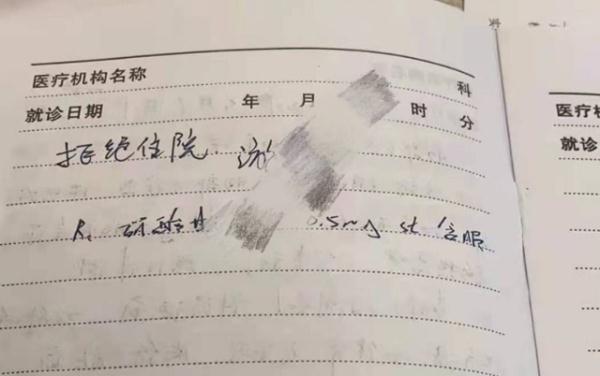 医疗机构名称 科
就诊日期 年 月 时 分
拒绝住院
R. 硝酸甘 0.5mg st 含服
医疗机
就诊